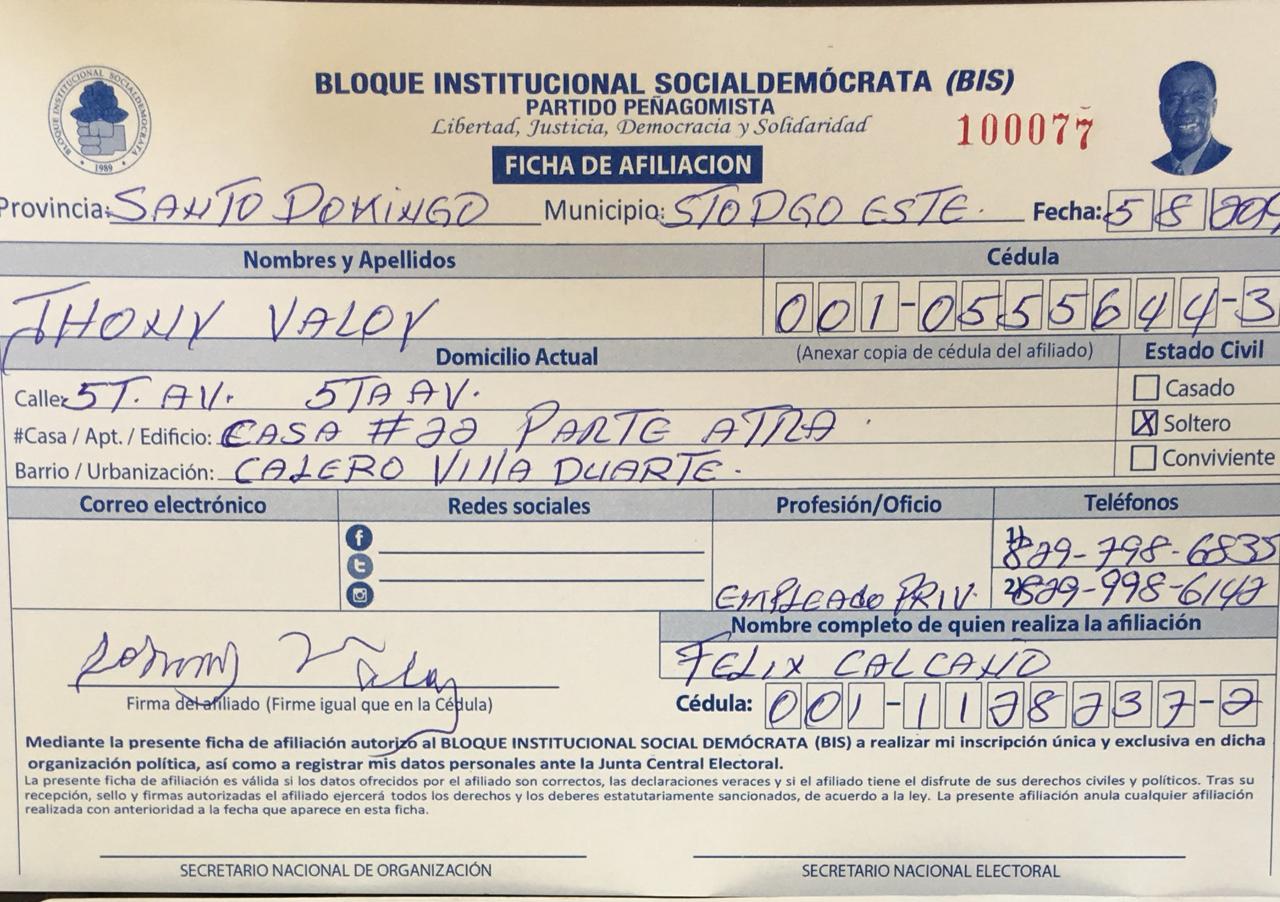 BLOQUE INSTITUCIONAL SOCIALDEMOCRATA
1989
BLOQUE INSTITUCIONAL SOCIALDEMÓCRATA (BIS)
PARTIDO PEÑAGOMISTA
Libertad, Justicia, Democracia y Solidaridad
100077
FICHA DE AFILIACION
Provincia: SANTO DOMINGO Municipio: STO DGO ESTE. Fecha: 5 8
Nombres y Apellidos Cédula
JHONY VALOY 001-0555644-3
Domicilio Actual (Anexar copia de cédula del afiliado) Estado Civil
Calle: 5T. AV. 5TA AV. Casado
#Casa / Apt. / Edificio: CASA #22 PARTE ATRA X Soltero
Barrio / Urbanización: CALERO VIllA DUARTE. Conviviente
Correo electrónico Redes sociales Profesión/Oficio Teléfonos
1) 829-798-6835
EMPLEADO PRIV. 2) 829-998-6142
Nombre completo de quien realiza la afiliación
FELIX CALCAÑO
Firma del afiliado (Firme igual que en la Cédula) Cédula: 001-1178237-2
Mediante la presente ficha de afiliación autorizo al BLOQUE INSTITUCIONAL SOCIAL DEMÓCRATA (BIS) a realizar mi inscripción única y exclusiva en dicha
organización política, así como a registrar mis datos personales ante la Junta Central Electoral.
La presente ficha de afiliación es válida si los datos ofrecidos por el afiliado son correctos, las declaraciones veraces y si el afiliado tiene el disfrute de sus derechos civiles y políticos. Tras su
recepción, sello y firmas autorizadas el afiliado ejercerá todos los derechos y los deberes estatutariamente sancionados, de acuerdo a la ley. La presente afiliación anula cualquier afiliación
realizada con anterioridad a la fecha que aparece en esta ficha.
SECRETARIO NACIONAL DE ORGANIZACIÓN SECRETARIO NACIONAL ELECTORAL